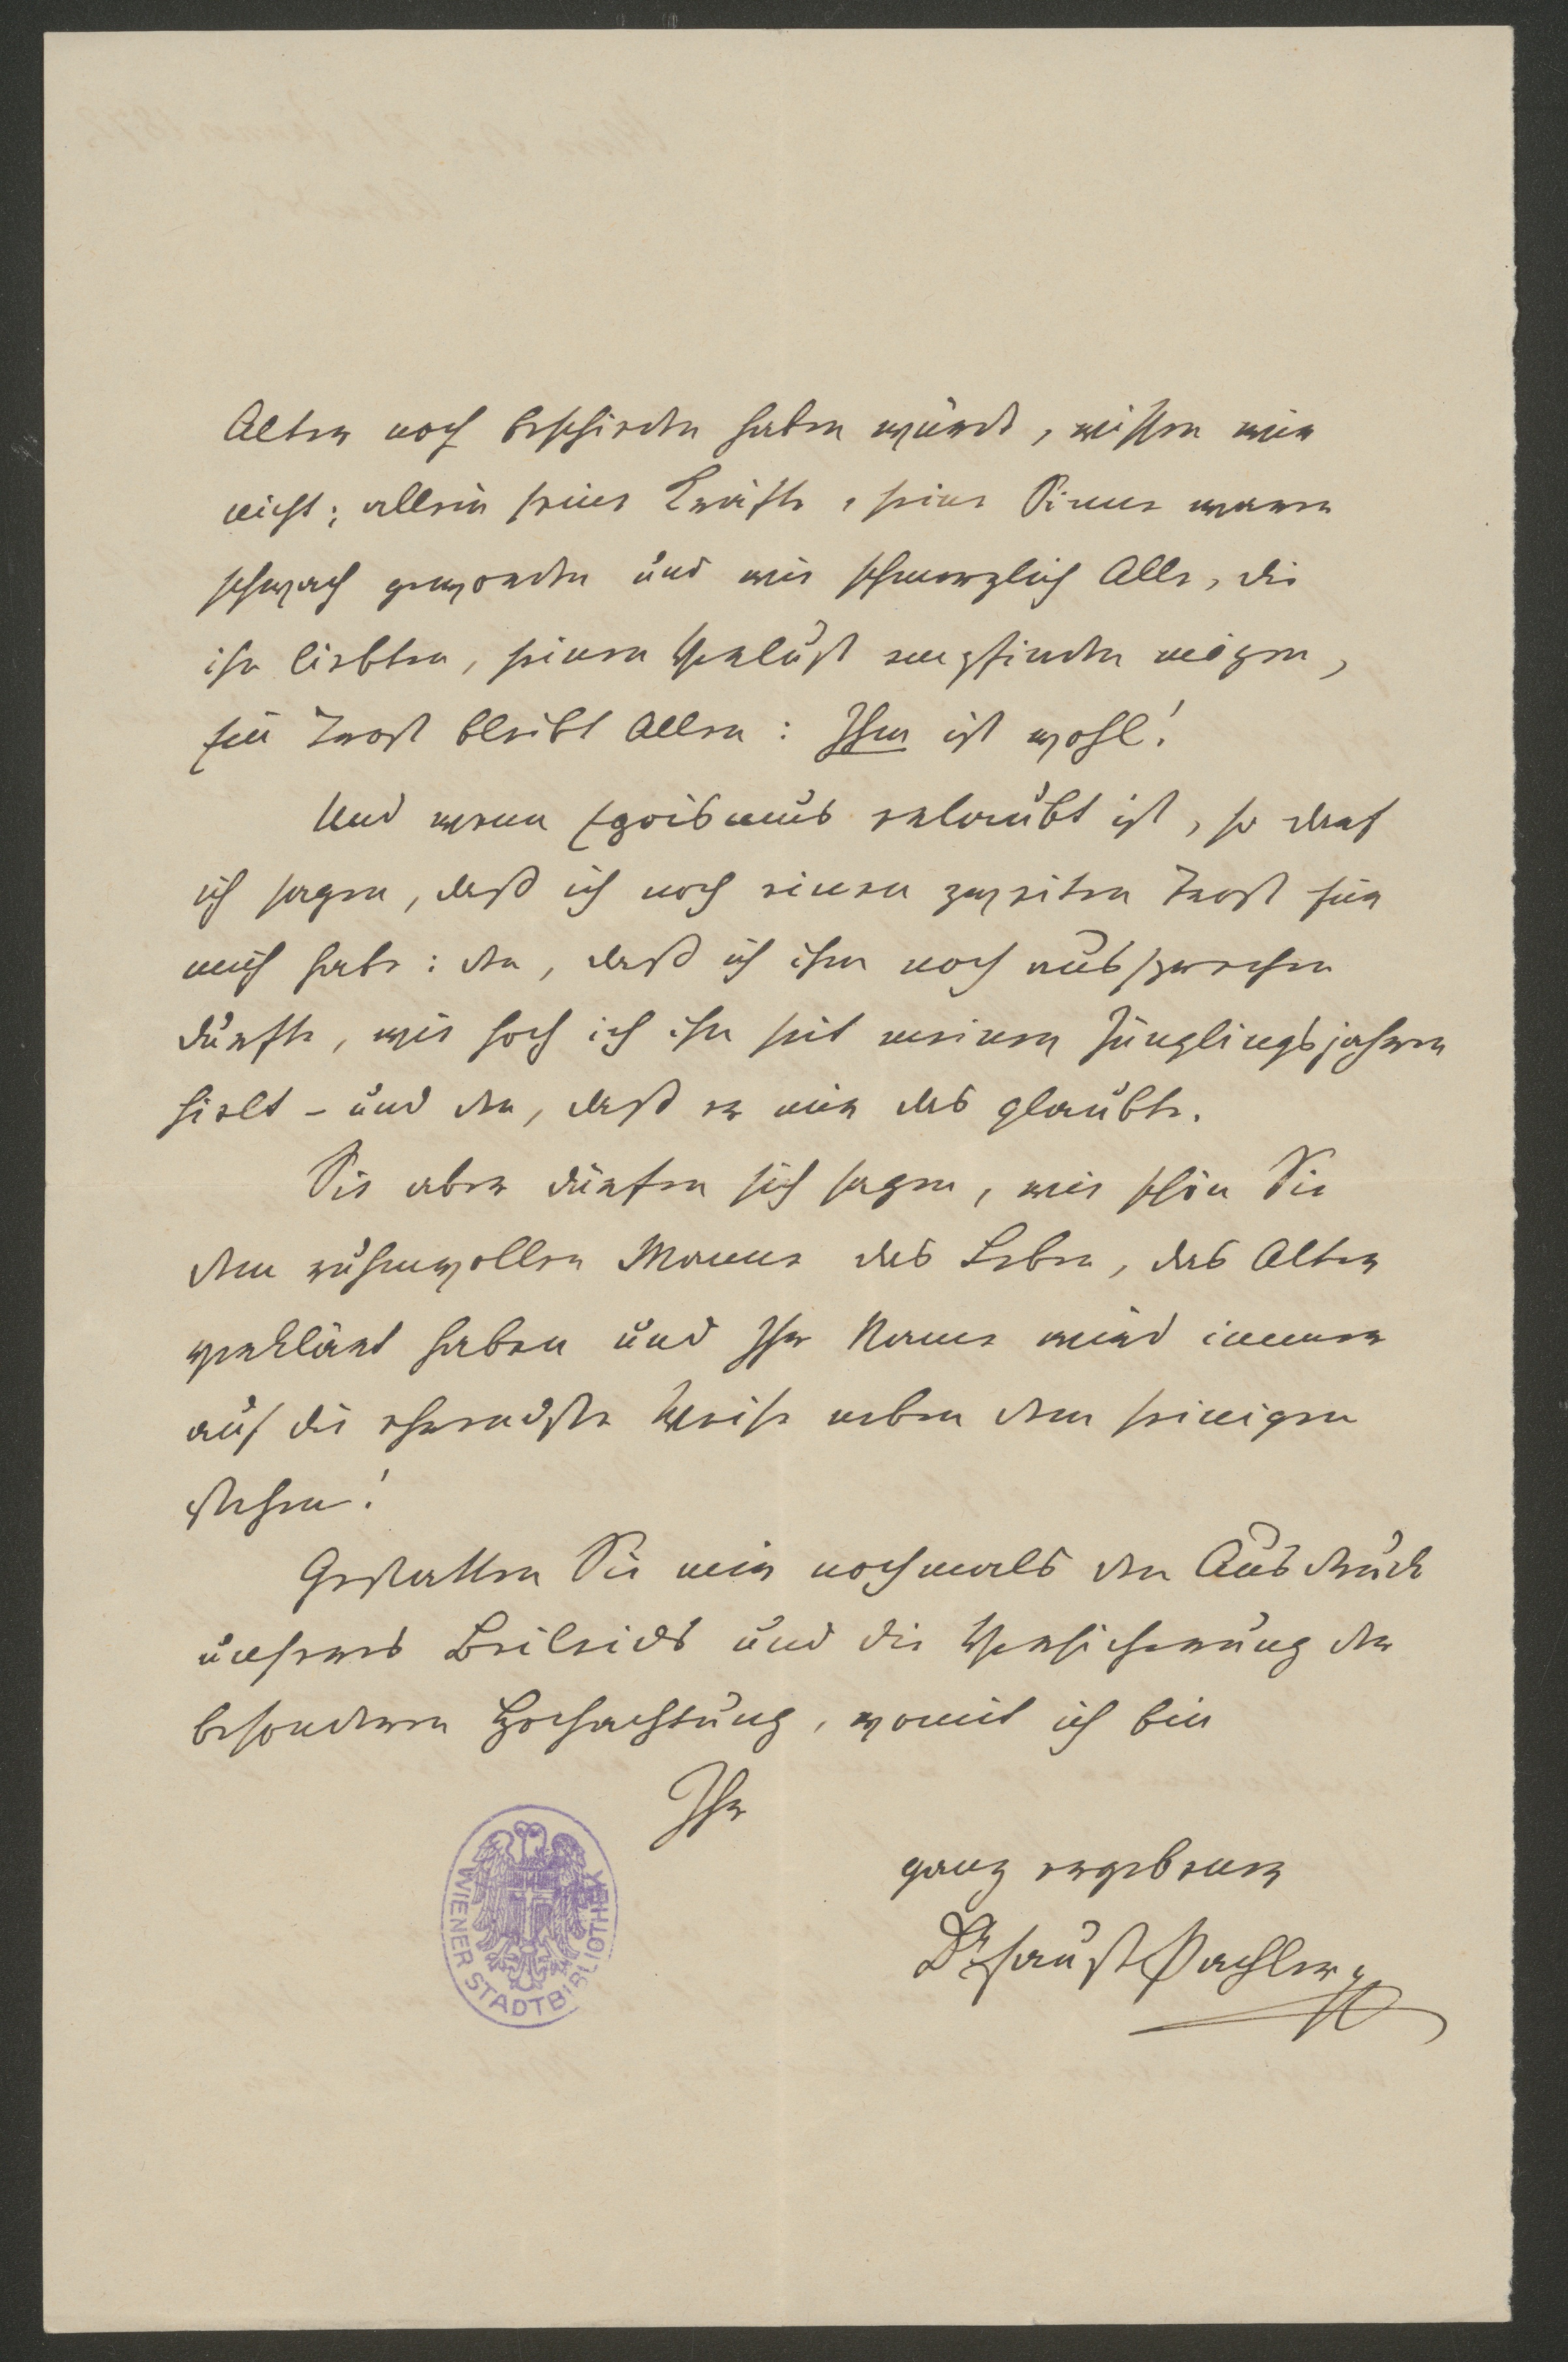 Alter noch beschieden haben würde, wissen wir
nicht; allein seine Kräfte, seine Sinne waren
schwach geworden und wie schmerzlich Alle, die
ihn liebten, seinen Verlust empfinden mögen,
Ein Trost bleibt Allen: Ihm ist wohl!
Und wenn Egoismus erlaubt ist, so darf
ich sagen, daß ich noch einen zweiten Trost für
mich habe: den, daß ich ihm noch aussprechen
durfte, wie hoch ich ihn seit meinen Jünglingsjahren
hielt – und den, daß er mir das glaubte.
Sie aber dürfen sich sagen, wie schön Sie
dem ruhmvollen Manne das Leben, das Alter
verklärt haben und Ihr Name wird immer
auf die ehrendste Weise neben dem seinigen
stehen!
Gestatten Sie mir nochmals den Ausdruck
unseres Beileids und die Versicherung der
besonderen Hochachtung, womit ich bin
Ihr
ganz ergebener
Dr Faust Pachler
WIENER STADTBIBLIOTHEK